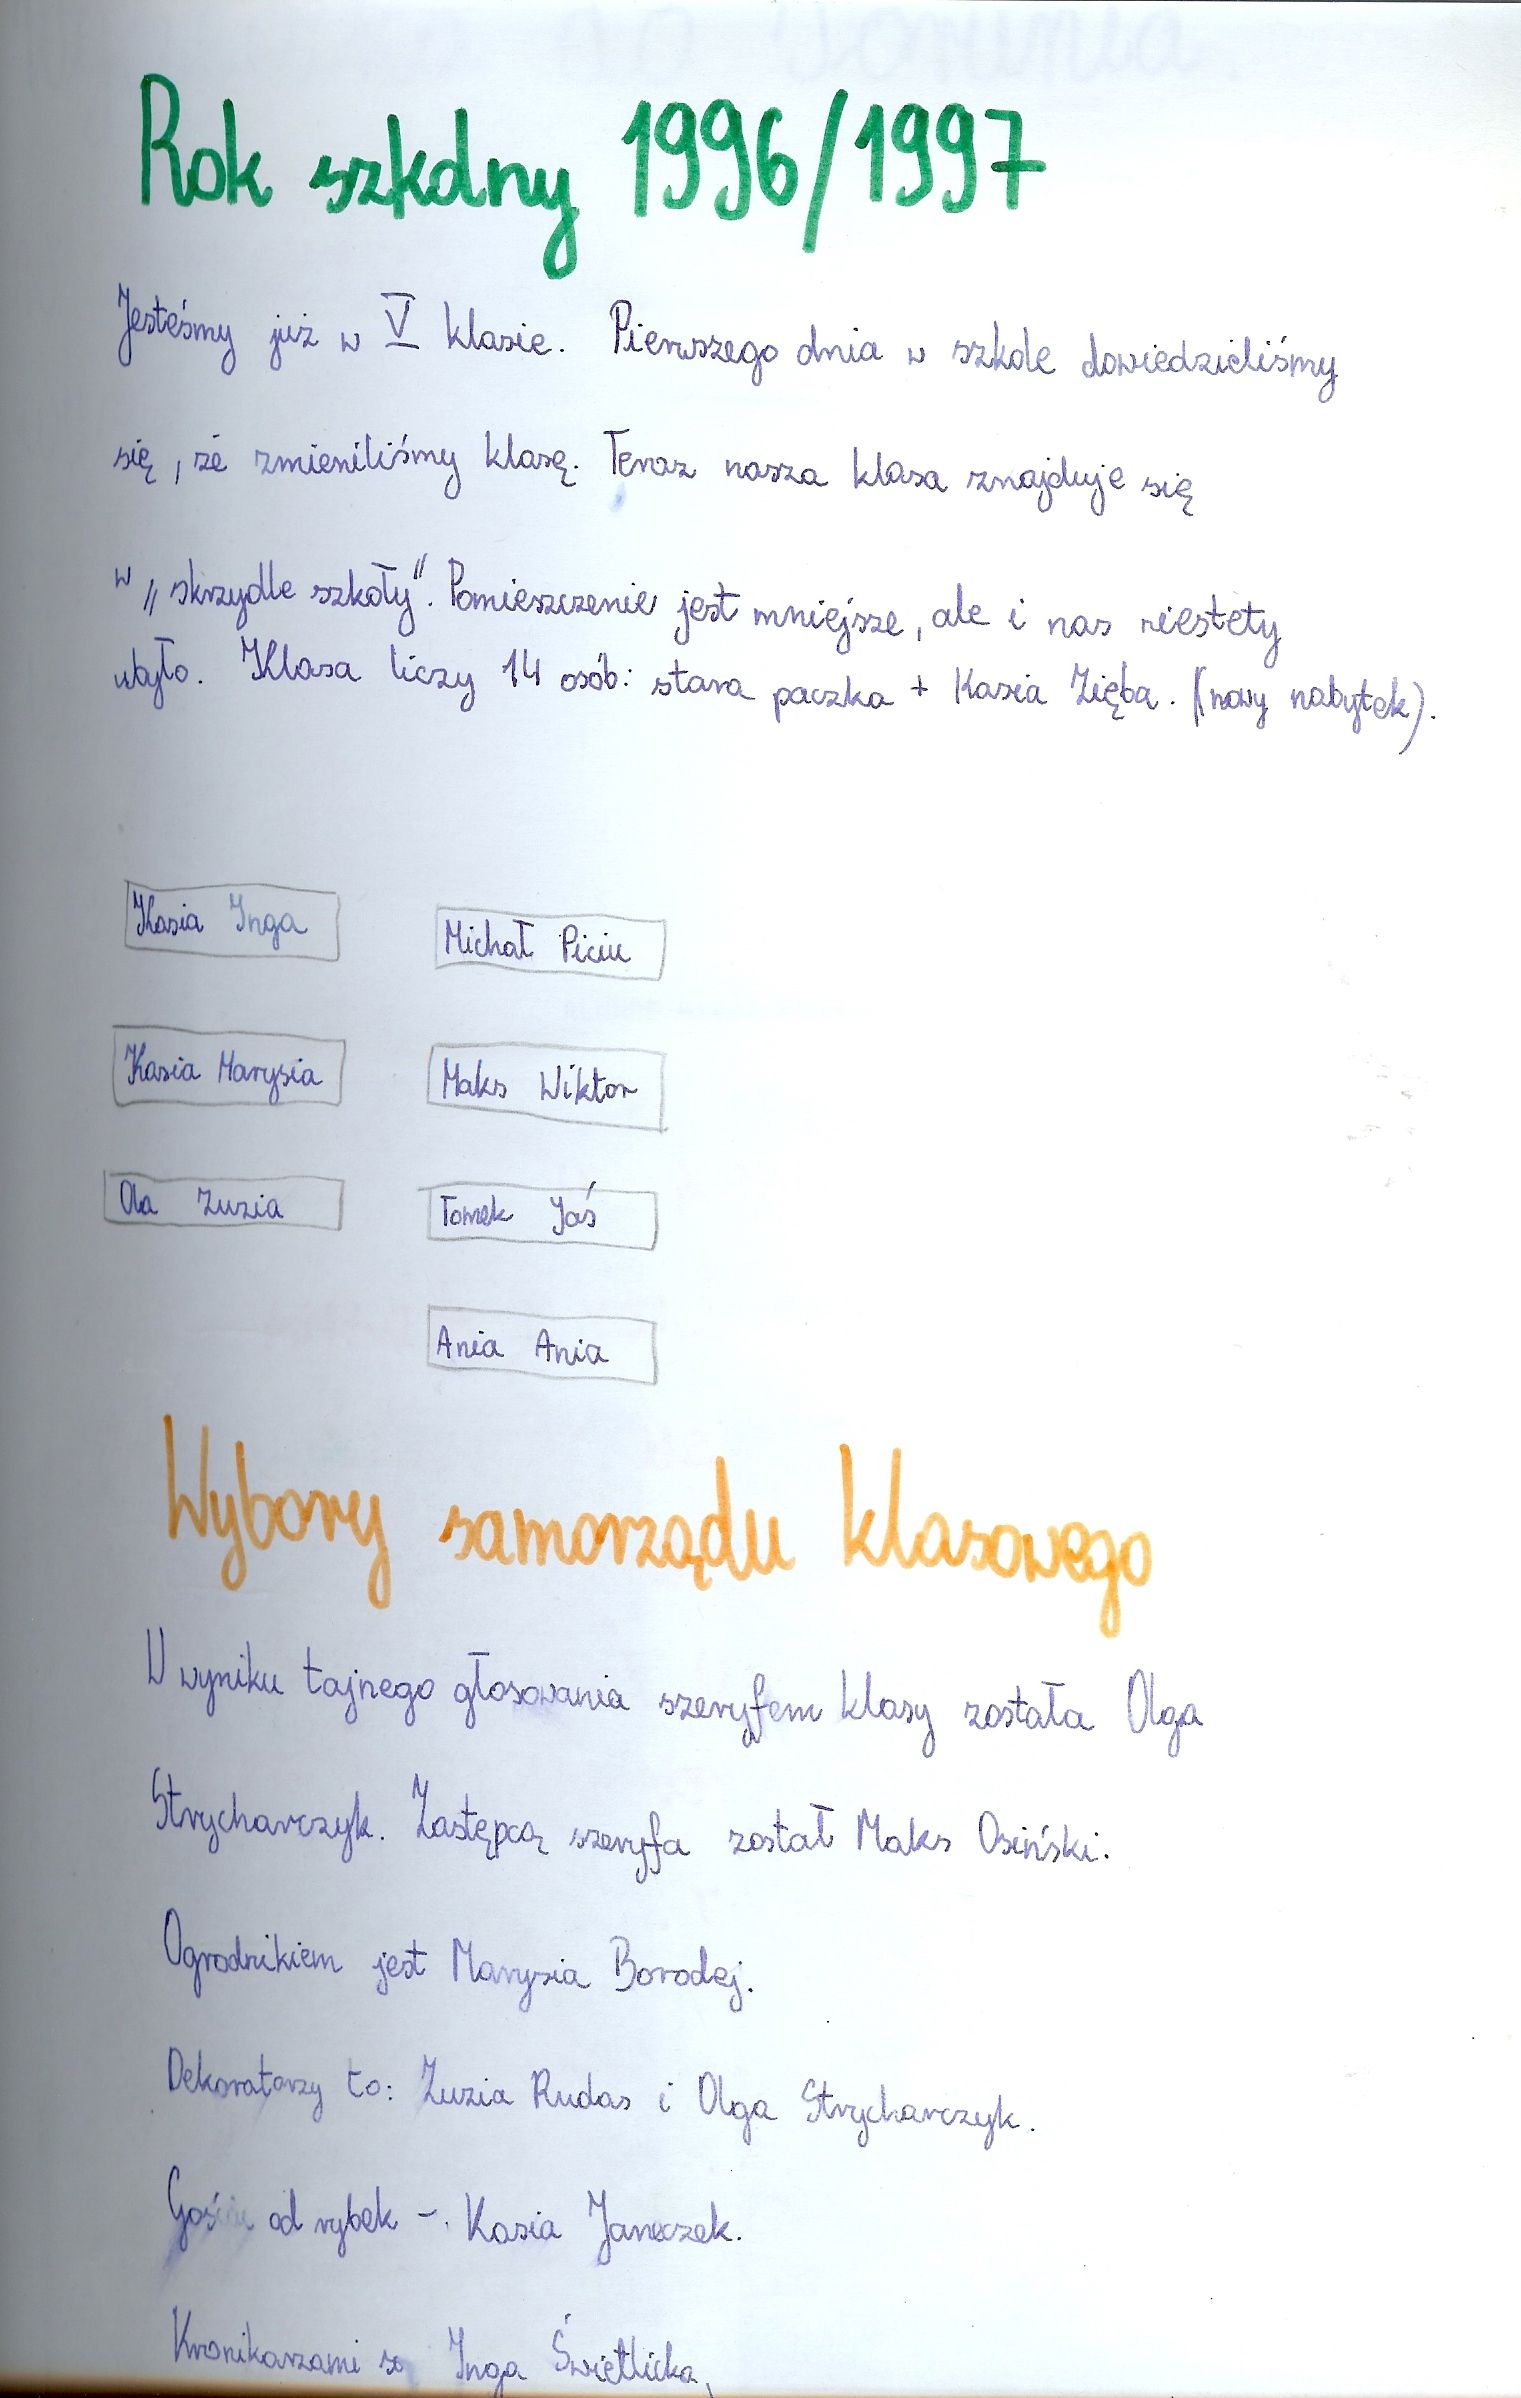 Rok szkolny 1996/1997
Jesteśmy już w V klasie. Pierwszego dnia w szkole dowiedzieliśmy
się, że zmieniliśmy klasę. Teraz nasza klasa znajduje się
w „skrzydle szkoły". Pomieszczenie jest mniejsze, ale i nas niestety
ubyło. Klasa liczy 14 osób: stara paczka + Kasia Zięba. (nowy nabytek).
Kasia Inga
Michał Piciu
Kasia Marysia
Maks Wiktor
Ola Zuzia
Tomek Jaś
Ania Ania
Wybory samorządu klasowego
W wyniku tajnego głosowania szeryfem klasy została Olga
Strycharczyk. Zastępcą szeryfa został Maks Osiński.
Ogrodnikiem jest Marysia Borodej.
Dekoratorzy to: Zuzia Rudas i Olga Strycharczyk.
od rybek - Kasia Janeczek.
Kronikarzami są Inga Świetlicka,